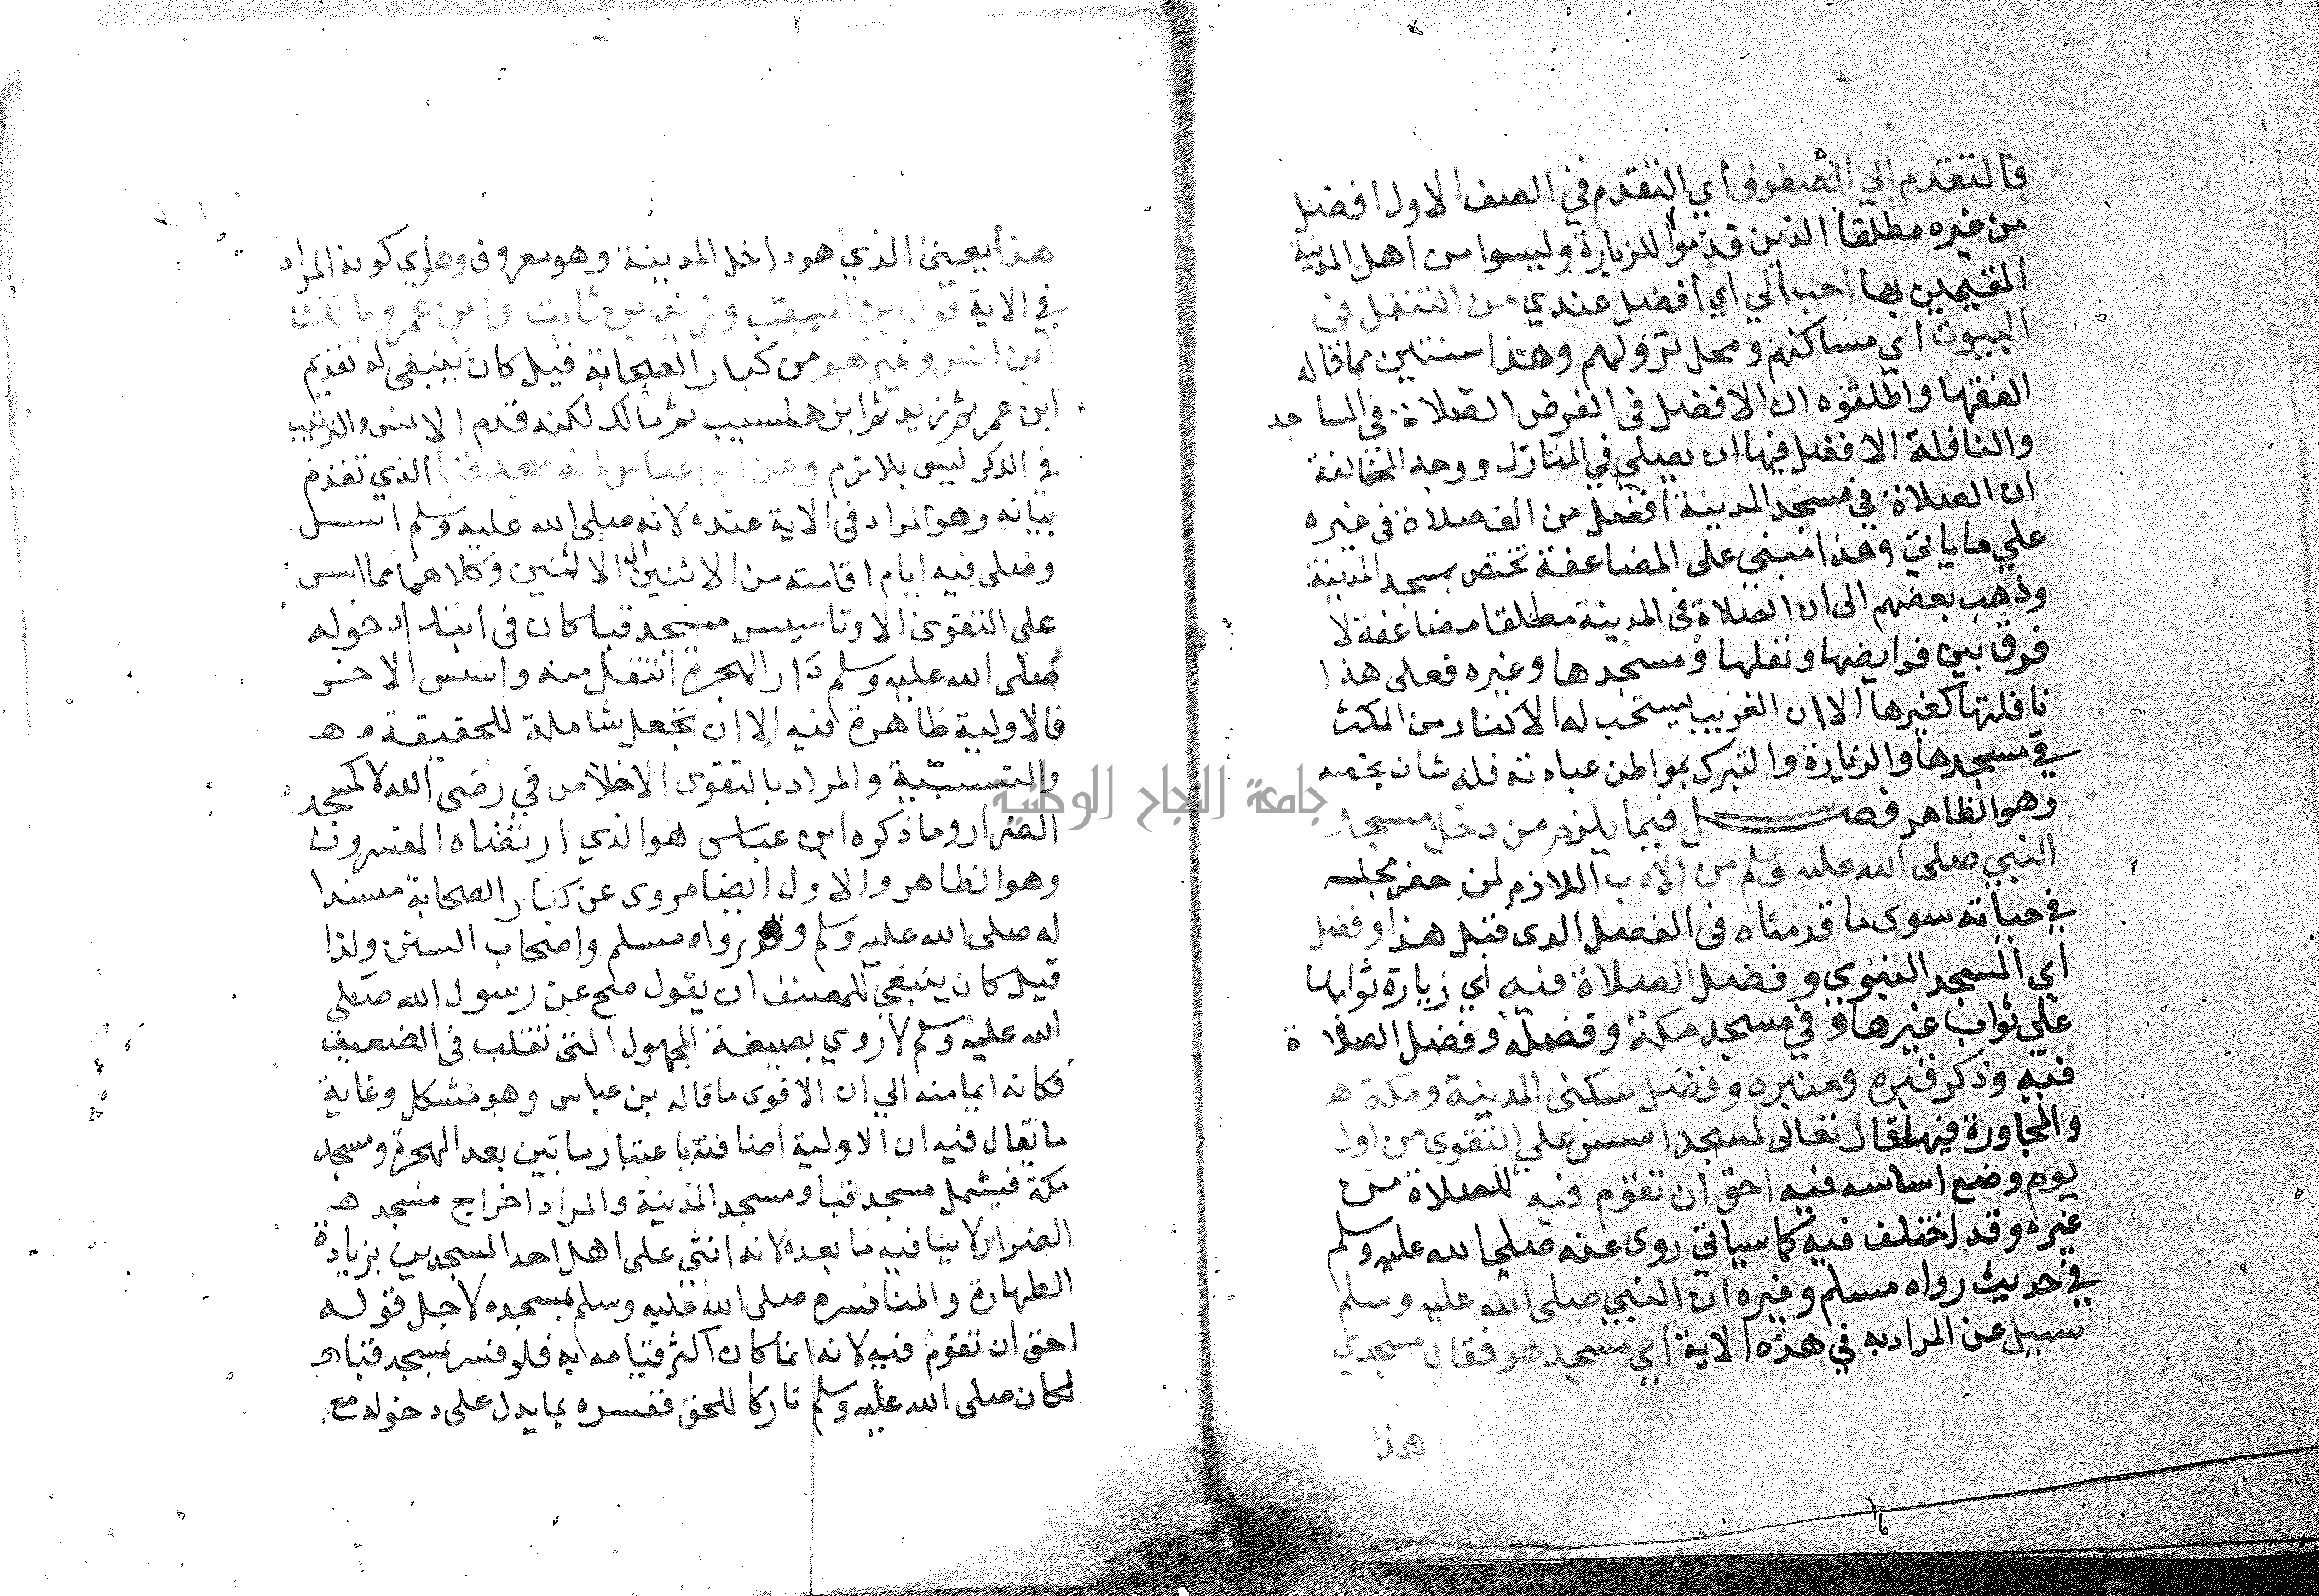 فالتقدم الي الصفوف اي التقدم في الصف الاول افضل
من غيره مطلقا الذين قدموا للزيارة وليسوا من اهل المدينة
المقيمين بها احب الي اي افضل عندي من التنفل في
البيوت اي مساكنهم ومحل نزولهم وهذا مما قاله
الفقها واطلقوه ان الافضل في الفرض الصلاة في المساجد
والنافلة الافضل فيها ان يصلي في المنازل ووجه المخالفة
ان الصلاة في مسجد المدينة افضل من الف صلاة في غيره
علي ما ياتي وهذا مبني على المضاعفة تختص بمسجد المدينة
وذهب بعضهم الى ان الصلاة في المدينة مطلقا مضاعفة لا
فرق بين فرايضها ونفلها ومسجدها وغيره فعلى هذا
نافلتها كغيرها الا ان الغريب يستحب له الاكثار من المكث
في مسجدها والزيارة والتبرك بمواطن عباداته فله شان يخصه
وهو الظاهر فصل فيما يلزم من دخل مسجد
النبي صلى الله عليه وسلم من الادب اللازم لمن حضر مجلسه
في حياته سوى ما قدمناه في الفصل الذي قبل هذا وفضل
اي المسجد النبوي وفضل الصلاة فيه اي زيارة ثوابها
علي ثواب غيرها وفي مسجد مكة وفضله وفضل الصلاة
فيه وذكر قبره ومنبره وفضل سكنى المدينة ومكة ه
والمجاورة فيها قال تعالى لمسجد اسس علي التقوى من اول
يوم وضع اساسه فيه احق ان تقوم فيه للصلاة من
غيره وقد اختلف فيه كما سياتي روى عنه صلى الله عليه وسلم
في حديث رواه مسلم وغيره ان النبي صلى الله عليه وسلم
سيل عن المراد به في هذه الاية اي مسجد هو فقال مسجدي
هذا
هذا يعني الذي هو داخل المدينة وهو معروف وهو اي كونه المراد
في الاية قول بن المسيب وزيد ابن ثابت وابن عمر ومالك
ابن انس وغيرهم من كبار الصحابة قيل كان ينبغي له تقديم
ابن عمر ثم زيد ثم ابن المسيب ثم مالك لكنه قدم والترتيب
في الذكر ليس بلازم وعن ابن عباس انه مسجد قبا الذي تقدم
بيانه وهو المراد في الاية عنده لانه صلى الله عليه وسلم اسسه
وصلى فيه ايام اقامته من الاثنين الى الاثنين وكلاهما مما اسس
على التقوى الا وتاسيس مسجد قبا كان في ابتدا دخوله
صلى الله عليه وسلم دار الهجرة انتقل منه واسس الاخر
فالاولية ظاهرة فيه الا ان تجعل شاملة للحقيقة ه
والنسبية والمراد بالتقوى الاخلاص في رضى الله لا كمسجد
الضرار وما ذكره ابن عباس هو الذي ارتضاه المفسرون
وهو الظاهر والاول ايضا مروى عن كبار الصحابة مسندا
له صلى الله عليه وسلم وقد رواه مسلم واصحاب السنن ولذا
قيل كان ينبغي للمصنف ان يقول صح عن رسول الله صلى
الله عليه وسلم لا روي بصيغة المجهول التى تغلب في الضعيف
فكانه ايما منه الي ان الاقوى ما قاله بن عباس وهو مشكل وغاية
ما يقال فيه ان الاولية اضافية باعتبار ما بين بعد الهجرة ومسجد
مكة فيشمل مسجد قبا ومسجد المدينة والمراد اخراج مسجد ه
الضرار لا ينافيه ما بعده لانه اثنى على اهل احد المسجدين بزيادة
الطهارة وانما فسره صلى الله عليه وسلم بمسجده لاجل قوله
احق ان تقوم فيه لانه انما كان اكثر قيامه به فلو فسر بمسجد قباء
لكان صلى الله عليه وسلم تاركا للحق ففسره بما يدل على دخوله مع
جامعة النجاح الوطنية